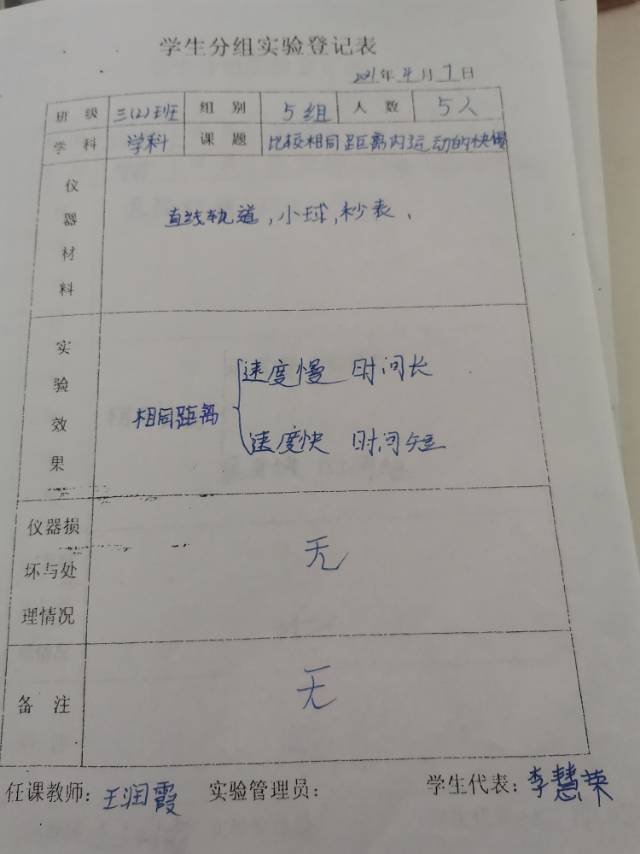 学生分组实验登记表
2021年4月7日
班级 三(2)班 组别 5组 人数 5人
学科 学科 课题 比较相同距离内运动的快慢
仪器材料 直线轨道,小球,秒表、
实验效果 相同距离 { 速度慢 时间长
速度快 时间短
仪器损坏与处理情况 无
备注 无
任课教师:王润霞 实验管理员: 学生代表:李慧荣